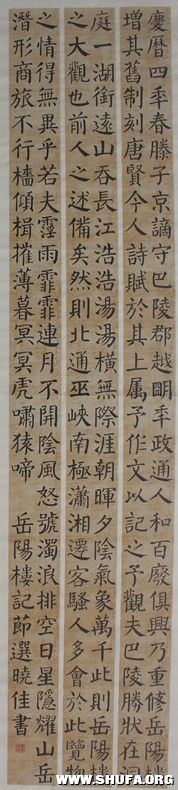 慶曆四年春滕子京謫守巴陵郡越明年政通人和百廢俱興乃重修岳陽樓
增其舊制刻唐賢今人詩賦於其上属予作文以記之予觀夫巴陵勝狀在洞
庭一湖銜遠山吞長江浩浩湯湯橫無際涯朝暉夕陰氣象萬千此則岳陽樓
之大觀也前人之述備矣然則北通巫峽南極瀟湘遷客騷人多會於此覽物
之情得無異乎若夫霪雨霏霏連月不開陰風怒號濁浪排空日星隱耀山岳
潛形商旅不行檣傾楫摧薄暮冥冥虎嘯猿啼 岳陽樓記節選曉佳書
WWW.SHUFA.ORG